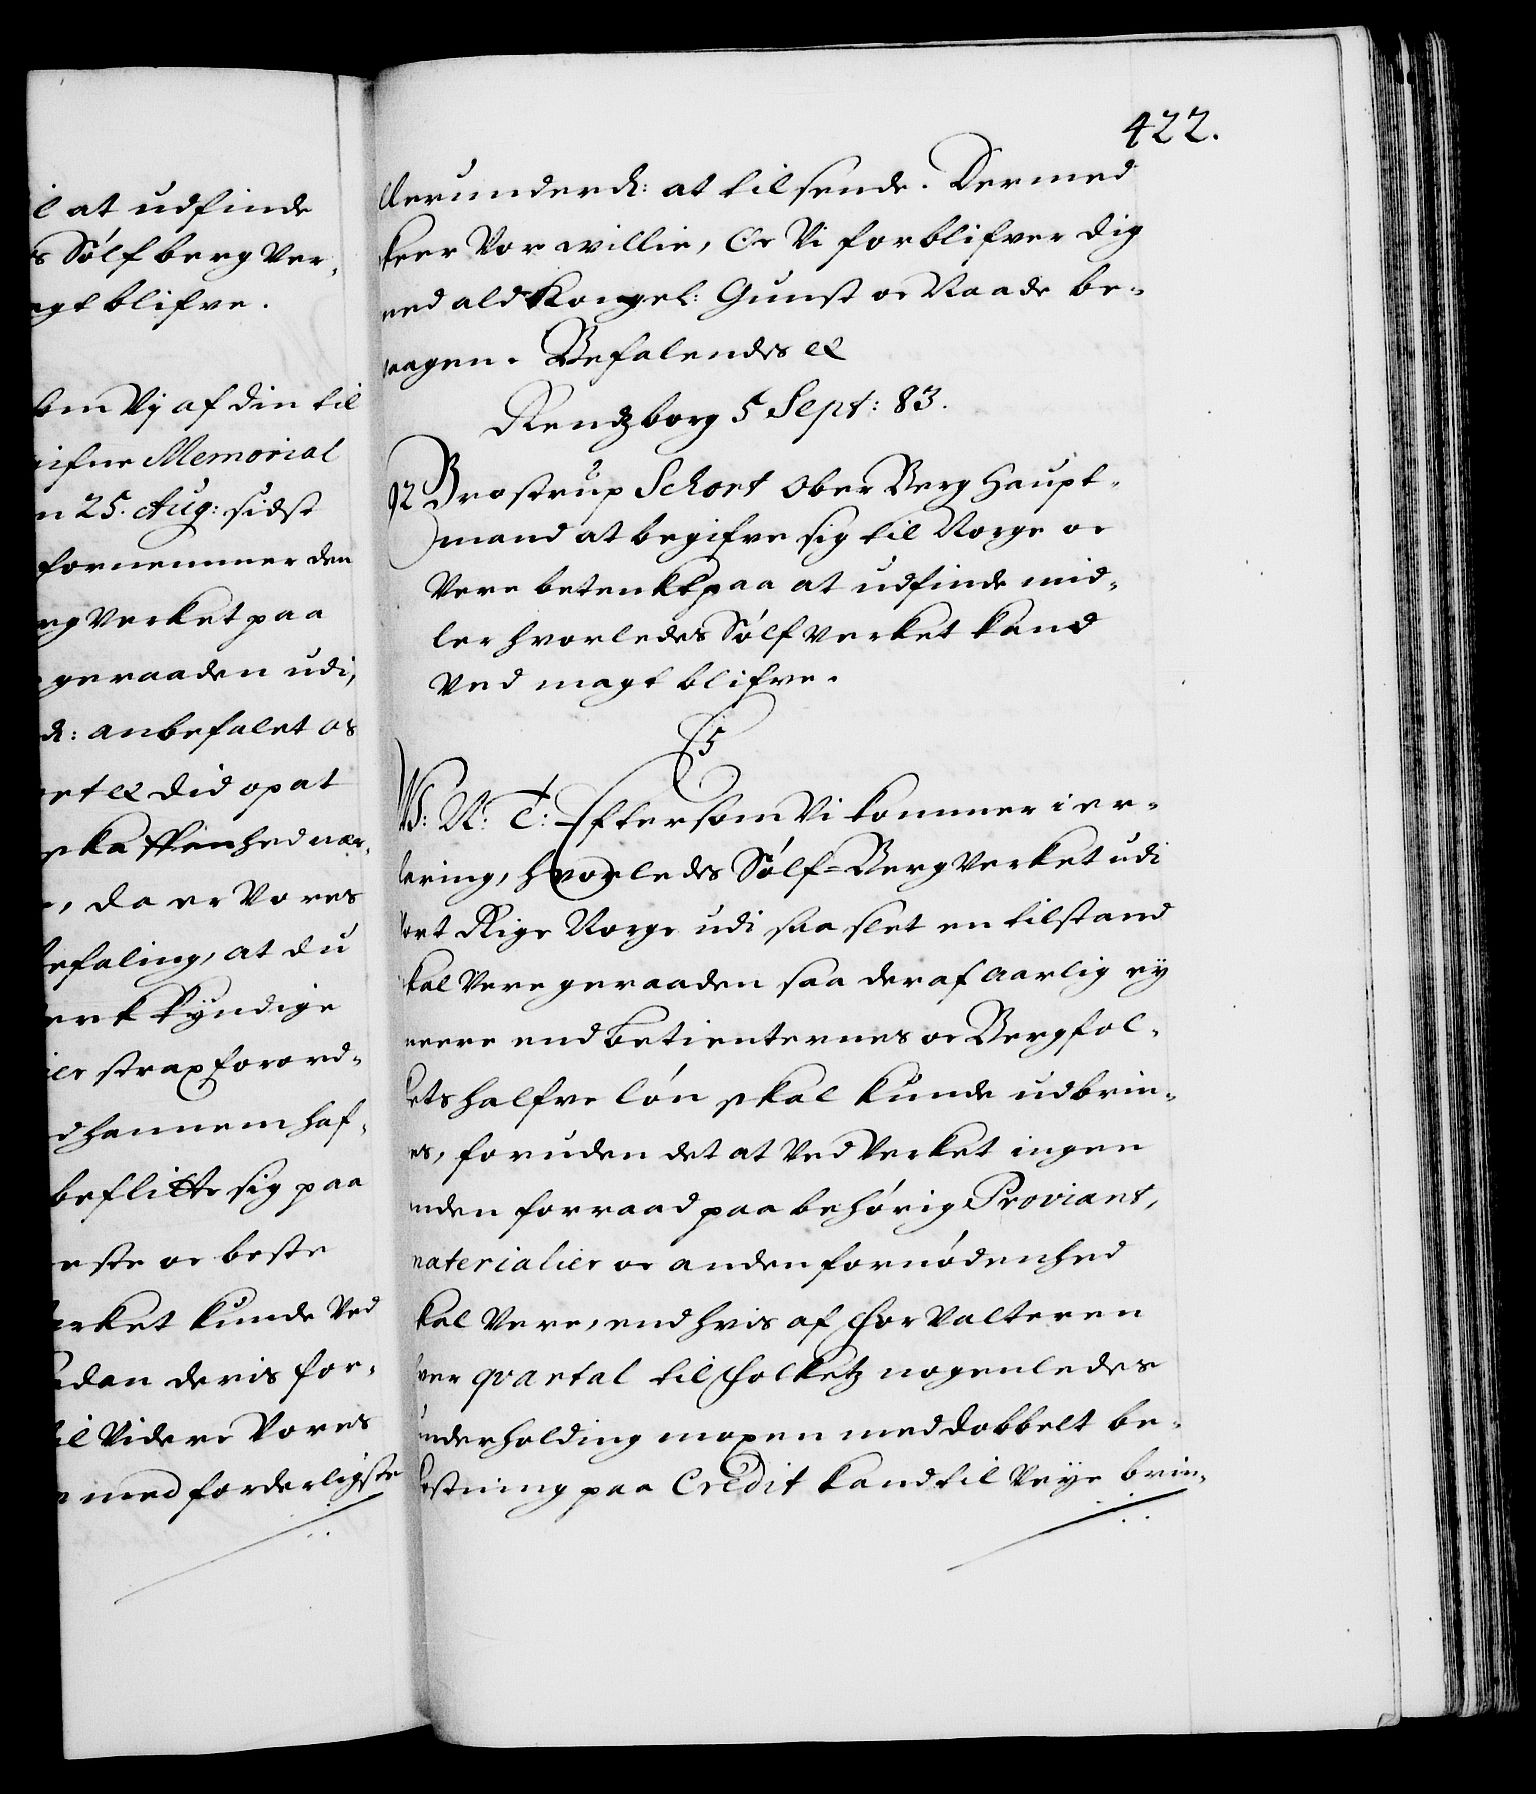 l at udfinde
s Sølf berg Ver-
agt blifve.
som Vij af din til
gifne Memorial
n 25. Aug: sidst
fornemmer den
erg Verket paa
geraaden udi,
d: anbefalet os
et & did op at
skaffenhed nær-
, da er Vores
befaling, at du
erk kÿndige
ier strax forord-
d hannem haf-
beflitte sig paa
este oc beste
erket kunde Ved
dan deris for-
il Videre Vores
n med forderligste
422.
allerunderd: at tilsende. Dermed
skeer Vor willie, Oc Vi forblifver dig
med ald Kongel: Gunst oc Naade be-
vaagen. Befalendes &
Rendzborg 5 Sept: 83.
92 Brostrup Schort Ober Berg Haupt-
mand at begifve sig til Norge oc
Vere betenkt paa at udfinde mid-
ler hvorledes Sølf Verket kand
Ved magt blifve.
C5
W: N: T: Eftersom Vi kommer i er-
faring, hvorledes Sølf-Berg Verket udi
Vort Rige Norge udi saa slet en tilstand
skal Vere geraaden saa deraf aarlig ey
meere end betienternes oc Bergfol-
kets halfve løn skal kunde udbrin-
es, foruden det at Ved Verket ingen
anden forraad paa behørig Proviant,
materialier oc anden fornødenhed
skal Vere, end hvis af ForValteren
hver qvartal til Folketz nogenledes
underholding moxen med dobbelt be-
kostning paa Credit kand til Veye brin-